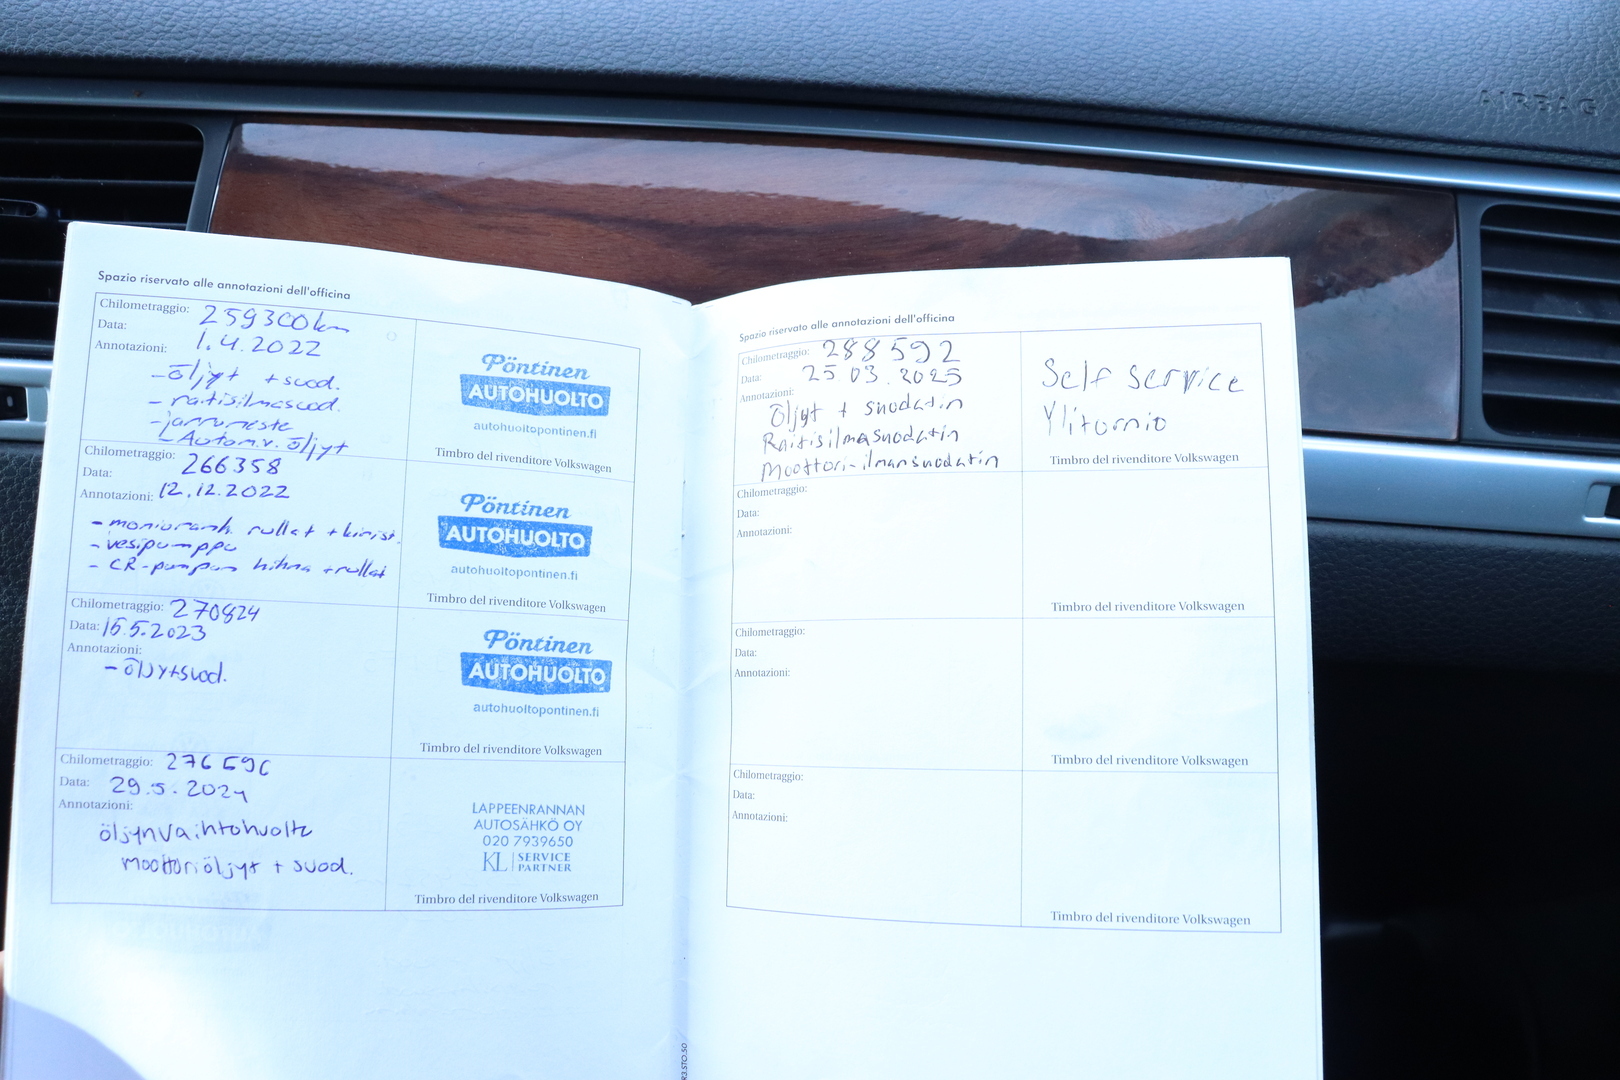 AIRBAG
Spazio riservato alle annotazioni dell'officina
Chilometraggio: 259300km
Data: 1.4.2022
Annotazioni:
- öljyt + suod.
- raitisilmasuod.
- jarruneste
- Autom.v. öljyt
Pöntinen
AUTOHUOLTO
autohuoltopontinen.fi
Timbro del rivenditore Volkswagen
Chilometraggio: 266358
Data: 12.12.2022
Annotazioni:
- moniuranh. rullat + kirist.
- vesipumppu
- CR-pumpun hihna + rullat
Pöntinen
AUTOHUOLTO
autohuoltopontinen.fi
Timbro del rivenditore Volkswagen
Chilometraggio: 270824
Data: 15.5.2023
Annotazioni:
- öljyt+suod.
Pöntinen
AUTOHUOLTO
autohuoltopontinen.fi
Timbro del rivenditore Volkswagen
Chilometraggio:
Data: 29.5.2024
Annotazioni:
öljynvaihtohuolto
moottoriöljyt + suod.
LAPPEENRANNAN
AUTOSÄHKÖ OY
020 7939650
KL SERVICE
PARTNER
Timbro del rivenditore Volkswagen
Spazio riservato alle annotazioni dell'officina
Chilometraggio: 288592
Data: 25 03.2025
Annotazioni:
Öljyt + suodatin
Raitisilmasuodatin
Moottori-ilmansuodatin
Self service
Ylitornio
Timbro del rivenditore Volkswagen
Chilometraggio:
Data:
Annotazioni:
Timbro del rivenditore Volkswagen
Chilometraggio:
Data:
Annotazioni:
Timbro del rivenditore Volkswagen
Chilometraggio:
Data:
Annotazioni:
Timbro del rivenditore Volkswagen